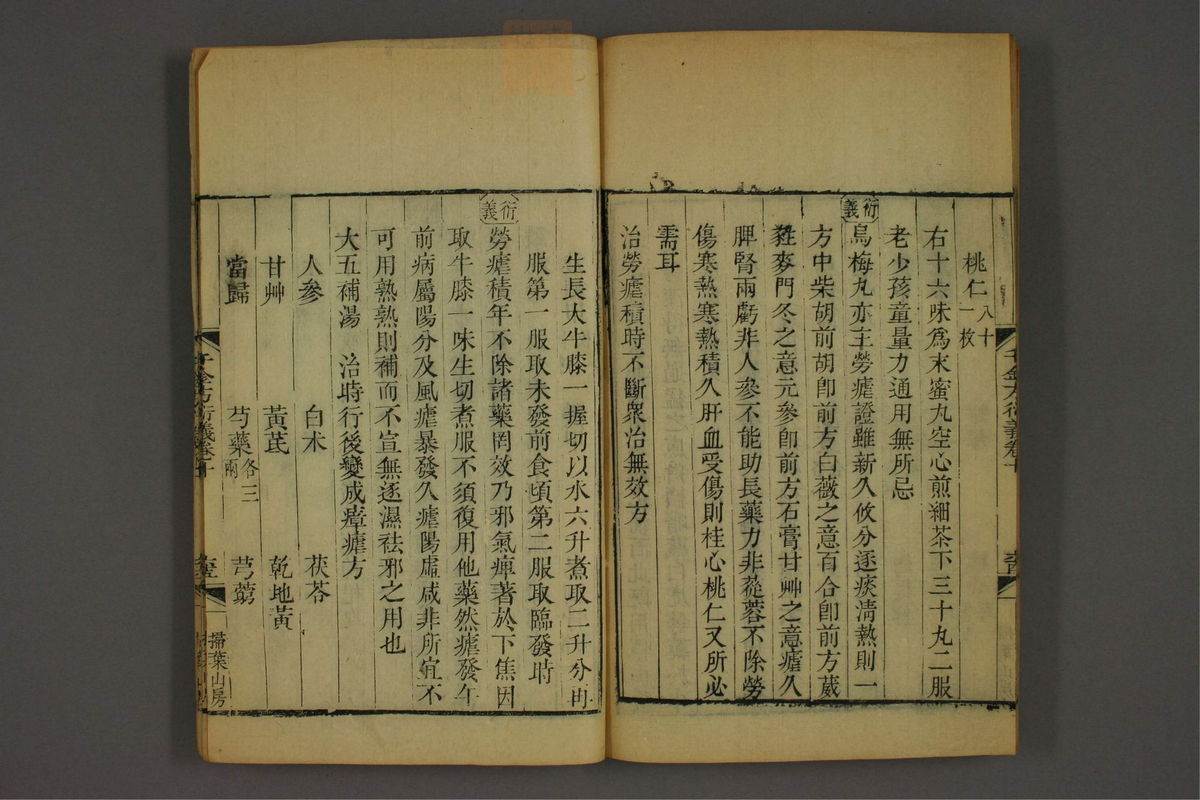 桃仁八十一枚
右十六味爲末蜜丸空心煎細茶下三十丸二服
老少孩童量力通用無所忌
衍義
烏梅丸亦主勞瘧證雖新久攸分逐痰淸熱則一
方中柴胡前胡卽前方白薇之意百合卽前方葳
蕤麥門冬之意元參卽前方石膏甘艸之意瘧久
脾腎兩虧非人參不能助長藥力非蓯蓉不除勞
傷寒熱寒熱積久肝血受傷則桂心桃仁又所必
需耳
治勞瘧積時不斷衆治無效方
生長大牛膝一握切以水六升煮取二升分再
服第一服取未發前食頃第二服取臨發時
衍義
勞瘧積年不除諸藥罔效乃邪氣痺著於下焦因
取牛膝一味生切煮服不須復用他藥然瘧發午
前病屬陽分及風瘧暴發久瘧陽虛咸非所宜不
可用熟熟則補而不宣無逐濕祛邪之用也
大五補湯 治時行後變成瘴瘧方
人參 白朮 茯苓
甘艸 黃芪 乾地黃
當歸 芍藥各三兩 芎藭
千金方衍義卷十
掃葉山房